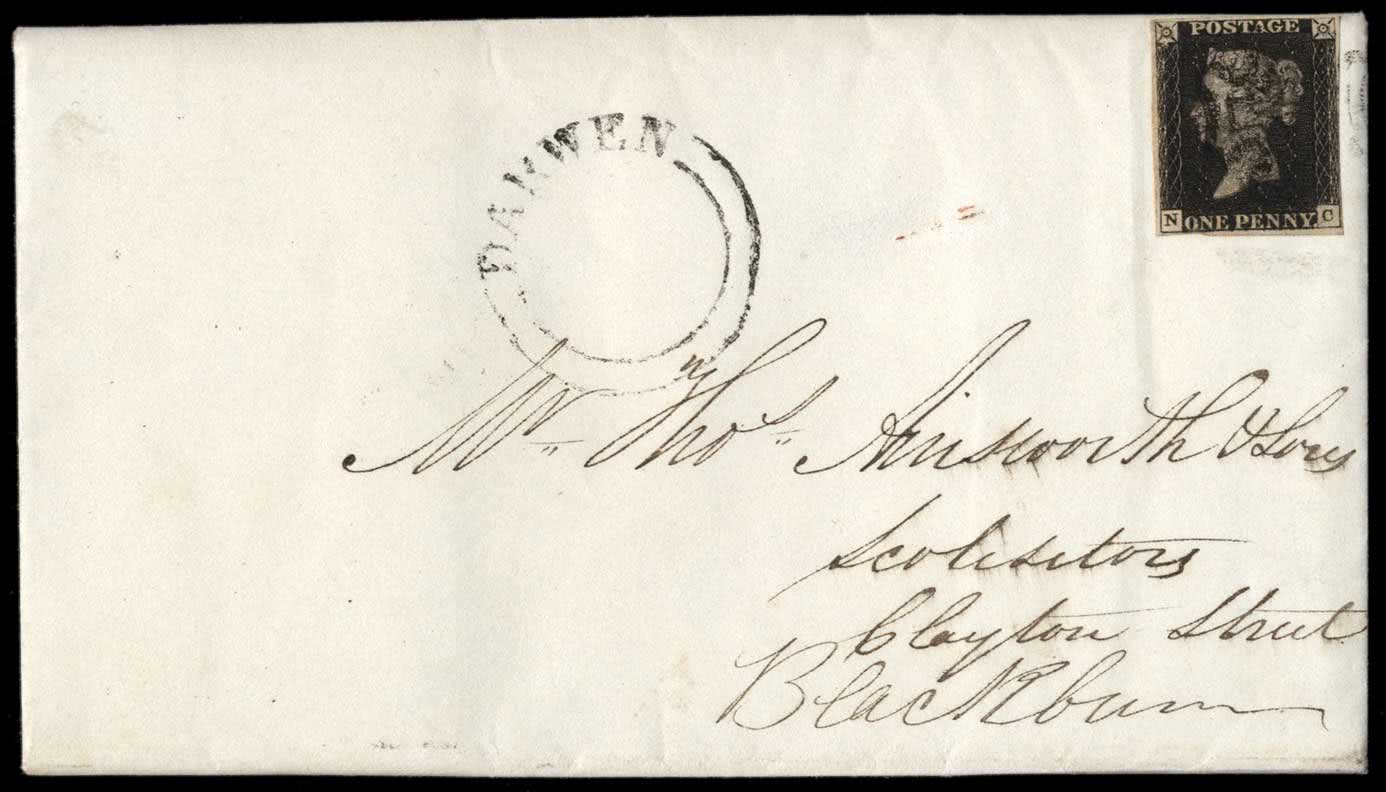 POSTAGE
N ONE PENNY. C
DARWEN
Mr Thos Ainsworth & Sons
Scolisitors
Clayton Street
Blackburn